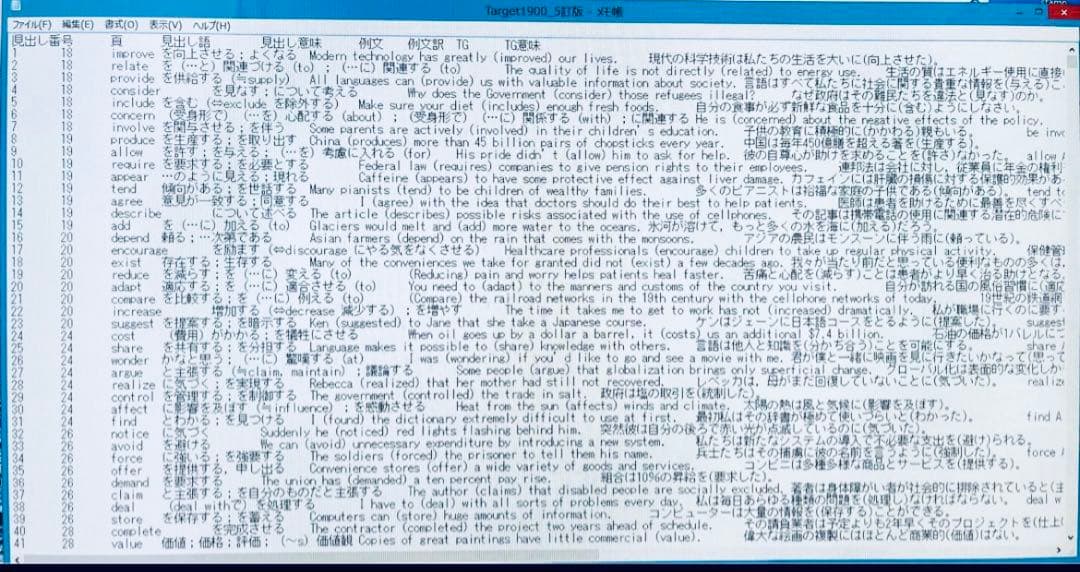 Target1900_5訂版 - メモ帳
ファイル(F) 編集(E) 書式(O) 表示(V) ヘルプ(H)
見出し番号 頁 見出し語 見出し意味 例文 例文訳 TG TG意味
1 18 improve を向上させる；よくなる Modern technology has greatly (improved) our lives. 現代の科学技術は私たちの生活を大いに(向上させた)。
2 18 relate を(…と)関連づける (to)；(…に)関連する (to) The quality of life is not directly (related) to energy use. 生活の質はエネルギー使用に直接
3 18 provide を供給する (≒supply) All languages can (provide) us with valuable information about society. 言語はすべて私たちに社会に関する貴重な情報を(与える)こ
4 18 consider を見なす；について考える Why does the Government (consider) those refugees illegal? なぜ政府はその難民たちを違法と(見なす)のか。
5 18 include を含む (⇔exclude を除外する) Make sure your diet (includes) enough fresh foods. 自分の食事が必ず新鮮な食品を十分に(含む)ようにしなさい。
6 18 concern (受身形で) (…を)心配する (about)；(受身形で) (…に)関係する (with)；に関連する He is (concerned) about the negative effects of the policy.
7 18 involve を関与させる；を伴う Some parents are actively (involved) in their children's education. 子供の教育に積極的に(かかわる)親もいる。 be inv
8 18 produce を生産する；を取り出す China (produces) more than 45 billion pairs of chopsticks every year. 中国は毎年450億膳を超える箸を(生産する)。
9 18 allow を許す；を与える；(…を)考慮に入れる (for) His pride didn't (allow) him to ask for help. 彼の自尊心が助けを求めることを(許さ)なかった。 allow A
10 18 require を要求する；を必要とする Federal law (requires) companies to give pension rights to their employees. 連邦法は会社に対し、従業員に年金の権利
11 18 appear …のように見える；現れる Caffeine (appears) to have some protective effect against liver damage. カフェインには肝臓の損傷に対する保護的効果があ
12 18 tend 傾向がある；を世話する Many pianists (tend) to be children of wealthy families. 多くのピアニストは裕福な家庭の子供である(傾向がある)。 tend to
13 19 agree 意見が一致する；同意する I (agree) with the idea that doctors should do their best to help patients. 医師は患者を助けるために最善を尽くすべ
14 19 describe について述べる The article (describes) possible risks associated with the use of cellphones. その記事は携帯電話の使用に関連する潜在的危険に
15 19 add を(…に)加える (to) Glaciers would melt and (add) more water to the oceans. 氷河が溶けて、もっと多くの水を海に(加える)だろう。
16 20 depend 頼る；…次第である Asian farmers (depend) on the rain that comes with the monsoons. アジアの農民はモンスーンに伴う雨に(頼っている)。
17 20 encourage を励ます (⇔discourage にやる気をなくさせる) Healthcare professionals (encourage) children to take up regular physical activity. 保健管
18 20 exist 存在する；生存する Many of the conveniences we take for granted did not (exist) a few decades ago. 我々が当たり前だと思っている便利なものの多くは、
19 20 reduce を減らす；を(…に)変える (to) (Reducing) pain and worry helps patients heal faster. 苦痛と心配を(減らす)ことは患者がより早く治る助けとなる。
20 20 adapt 適応する；を(…に)適合させる (to) You need to (adapt) to the manners and customs of the country you visit. 自分が訪れる国の風俗習慣に(適応
21 20 compare を比較する；を(…に)例える (to) (Compare) the railroad networks in the 19th century with the cellphone networks of today. 19世紀の鉄道網
22 20 increase 増加する (⇔decrease 減少する)；を増やす The time it takes me to get to work has not (increased) dramatically. 私が職場に行くのに要す
23 20 suggest を提案する；を暗示する Ken (suggested) to Jane that she take a Japanese course. ケンはジェーンに日本語コースをとるように(提案した)。 suggest
24 24 cost (費用)がかかる；を犠牲にさせる When oil goes up by a dollar a barrel, it (costs) us an additional $7.4 billion. 石油の価格が1バレルに
25 24 share を共有する；を分担する Language makes it possible to (share) knowledge with others. 言語は他人と知識を(分かち合う)ことを可能にする。 share
26 24 wonder かなと思う；に驚嘆する (at) I was (wondering) if you'd like to go and see a movie with me. 君が僕と一緒に映画を見に行きたいかなって(思って
27 24 argue と主張する (≒claim, maintain)；議論する Some people (argue) that globalization brings only superficial change. グローバル化は表面的な変化しか
28 24 realize に気づく；を実現する Rebecca (realized) that her mother had still not recovered. レベッカは、母がまだ回復していないことに(気づいた)。 realize
29 24 control を管理する；を制御する The government (controlled) the trade in salt. 政府は塩の取引を(統制した)。
30 24 affect に影響を及ぼす (≒influence)；を感動させる Heat from the sun (affects) winds and climate. 太陽の熱は風と気候に(影響を及ぼす)。
31 24 find とわかる；を見つける I (found) the dictionary extremely difficult to use at first. 最初私はその辞書が極めて使いづらいと(わかった)。 find A
32 26 notice に気づく Suddenly he (noticed) red lights flashing behind him. 突然彼は自分の後ろで赤い光が点滅しているのに(気づいた)。
33 26 avoid を避ける We can (avoid) unnecessary expenditure by introducing a new system. 私たちは新たなシステムの導入で不必要な支出を(避け)られる。
34 26 force に強いる；を強要する The soldiers (forced) the prisoner to tell them his name. 兵士たちはその捕虜に彼の名前を言うように(強制した)。 force A
35 26 offer を提供する，申し出る Convenience stores (offer) a wide variety of goods and services. コンビニは多種多様な商品とサービスを(提供する)。
36 26 demand を要求する The union has (demanded) a ten percent pay rise. 組合は10%の昇給を(要求した)。
37 26 claim と主張する；を自分のものだと主張する The author (claims) that disabled people are socially excluded. 著者は身体障がい者が社会的に排除されていると(主
38 26 deal (deal withで) を処理する I have to (deal) with all sorts of problems every day. 私は毎日あらゆる種類の問題を(処理し)なければならない。 deal w
39 26 store を保存する；を蓄える Computers can (store) huge amounts of information. コンピューターは大量の情報を(保存する)ことができる。
40 26 complete を完成させる The contractor (completed) the project two years ahead of schedule. その請負業者は予定よりも2年早くそのプロジェクトを(仕上
41 28 value 価値；価格；評価；(～s)価値観 Copies of great paintings have little commercial (value). 偉大な絵画の複製にはほとんど商業的(価値)はない。